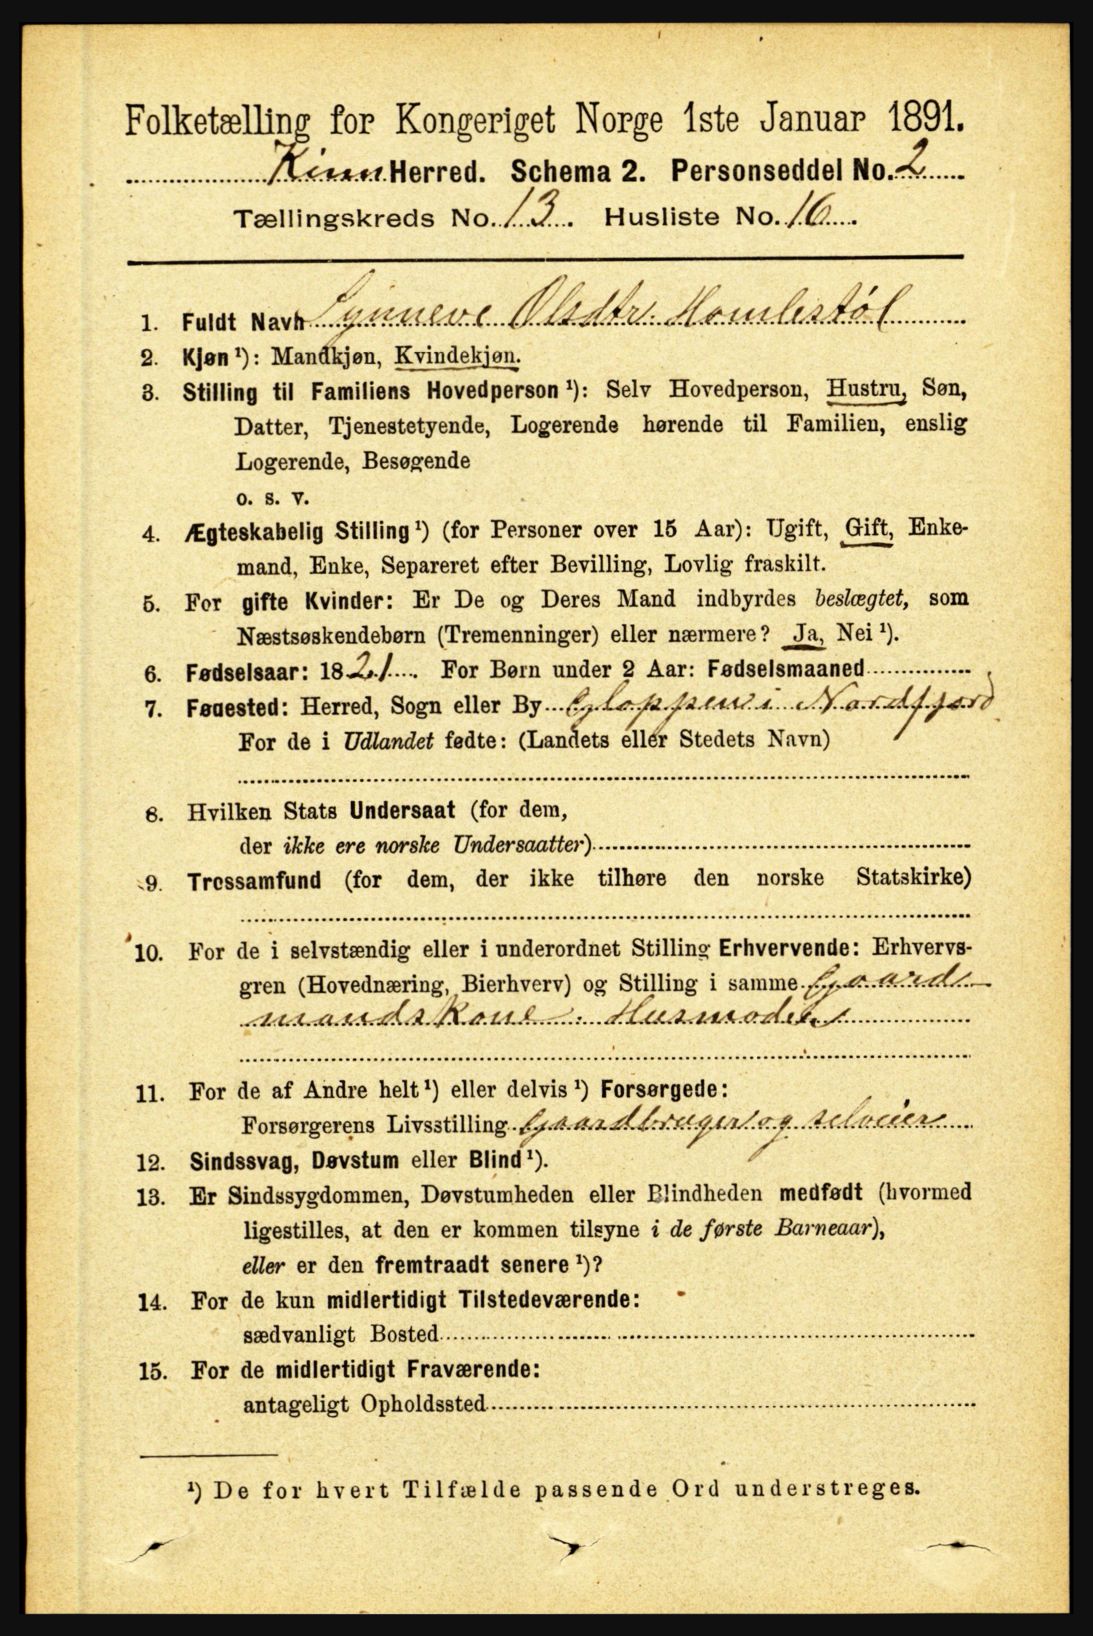 Folketælling for Kongeriget Norge 1ste Januar 1891.
Kinn Herred. Schema 2. Personseddel No. 2
Tællingskreds No. 13. Husliste No. 16.
1. Fuldt Navn Synneve Olsdtr. Homlestøl
2. Kjøn ¹): Mandkjøn, Kvindekjøn.
3. Stilling til Familiens Hovedperson ¹): Selv Hovedperson, Hustru, Søn,
Datter, Tjenestetyende, Logerende hørende til Familien, enslig
Logerende, Besøgende
o. s. v.
4. Ægteskabelig Stilling ¹) (for Personer over 15 Aar): Ugift, Gift, Enke-
mand, Enke, Separeret efter Bevilling, Lovlig fraskilt.
5. For gifte Kvinder: Er De og Deres Mand indbyrdes beslægtet, som
Næstsøskendebørn (Tremenninger) eller nærmere? Ja, Nei ¹).
6. Fødselsaar: 1821. For Børn under 2 Aar: Fødselsmaaned
7. Føaested: Herred, Sogn eller By Gloppen i Nordfjord
For de i Udlandet fødte: (Landets eller Stedets Navn)
8. Hvilken Stats Undersaat (for dem,
der ikke ere norske Undersaatter)
9. Trossamfund (for dem, der ikke tilhøre den norske Statskirke)
10. For de i selvstændig eller i underordnet Stilling Erhvervende: Erhvervs-
gren (Hovednæring, Bierhverv) og Stilling i samme Gaard
mandskone. Husmoder
11. For de af Andre helt ¹) eller delvis ¹) Forsørgede:
Forsørgerens Livsstilling Gaardbruger og selveier
12. Sindssvag, Døvstum eller Blind ¹).
13. Er Sindssygdommen, Døvstumheden eller Blindheden medfødt (hvormed
ligestilles, at den er kommen tilsyne i de første Barneaar),
eller er den fremtraadt senere ¹)?
14. For de kun midlertidigt Tilstedeværende:
sædvanligt Bosted
15. For de midlertidigt Fraværende:
antageligt Opholdssted
¹) De for hvert Tilfælde passende Ord understreges.